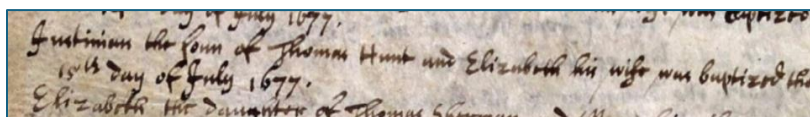 day of July 1677. was baptized
Justinian the sonn of Thomas Hunt and Elizabeth his wife was baptized the
15th day of July 1677.
Elizabeth the daughter of Thomas